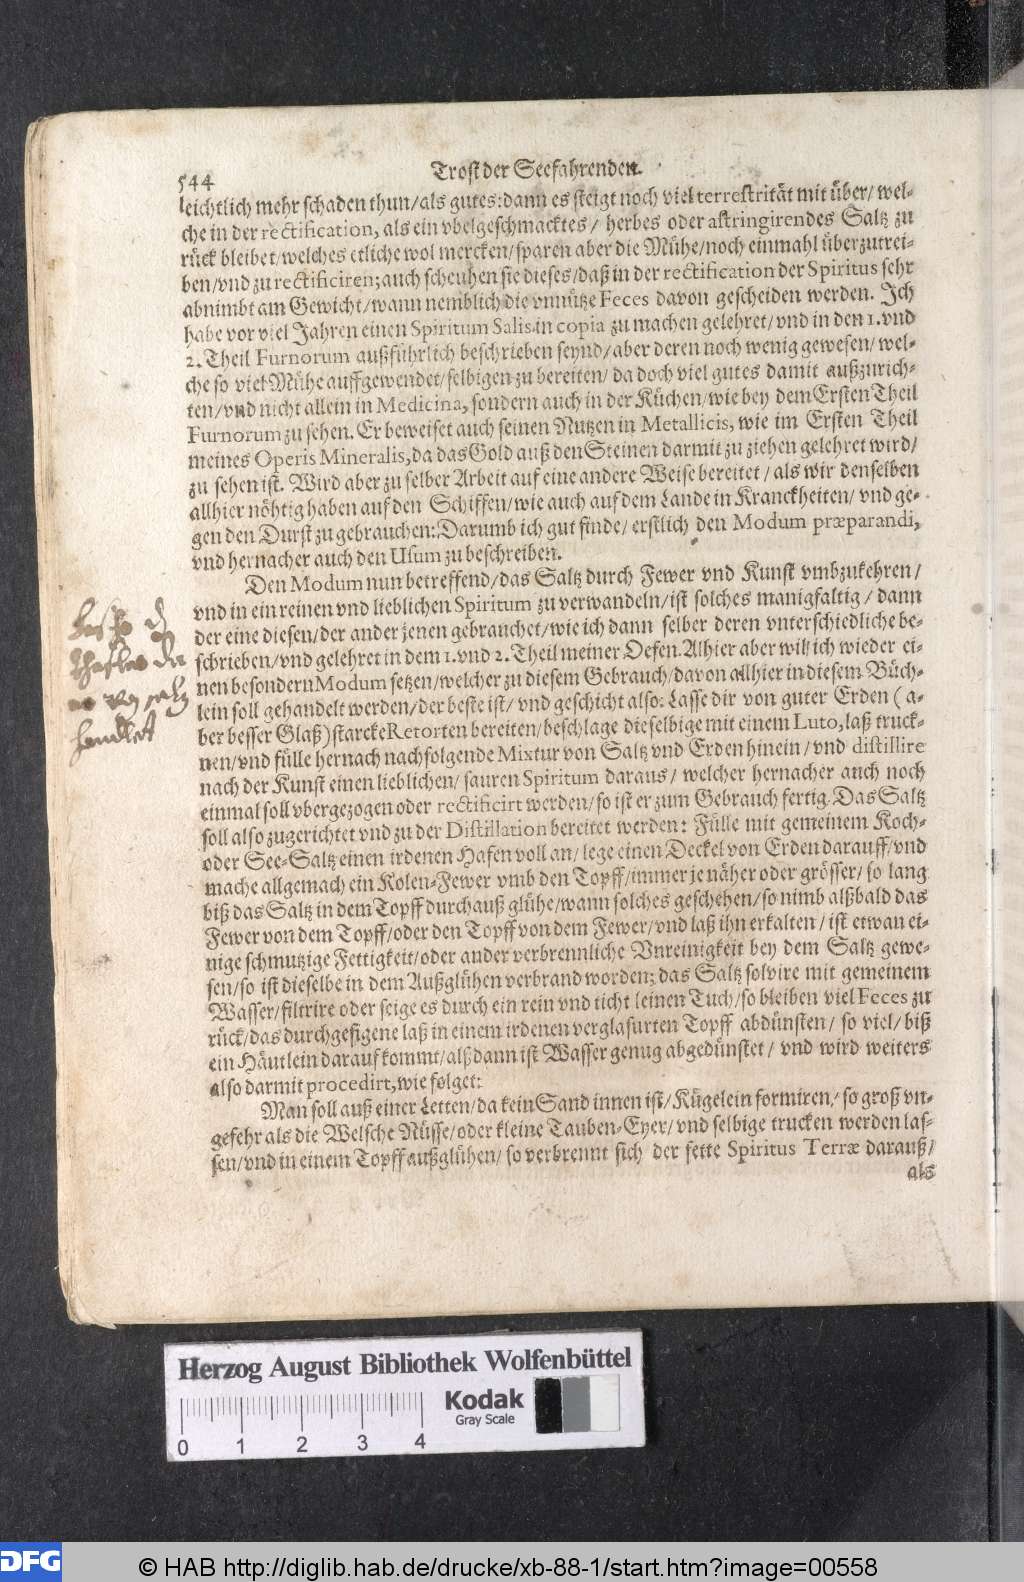 544
Trost der Seefahrenden.
leichtlich mehr schaden thun/als gutes: dann es steigt noch viel terrestrität mit über/ wel-
che in der rectification, als ein vbelgeschmacktes/ herbes oder astringirendes Saltz zu
rück bleibet/welches etliche wol mercken/sparen aber die Mühe/noch einmahl überzutrei-
ben/vnd zu rectificiren; auch scheuhen sie dieses/daß in der rectification der Spiritus sehr
abnimbt am Gewicht/wann nemblich die vnnütze Feces davon gescheiden werden. Ich
habe vor viel Jahren einen Spiritum Salis in copia zu machen gelehret/vnd in den 1. vnd
2. Theil Furnorum außführlich beschrieben seynd/aber deren noch wenig gewesen/wel-
che so viel Mühe auffgewendet/selbigen zu bereiten/da doch viel gutes damit außzurich-
ten/vnd nicht allein in Medicina, sondern auch in der Küchen/wie bey dem Ersten Theil
Furnorum zu sehen. Er beweiset auch seinen Nutzen in Metallicis, wie im Ersten Theil
meines Operis Mineralis, da das Gold auß den Steinen darmit zu ziehen gelehret wird/
zu sehen ist. Wird aber zu selber Arbeit auf eine andere Weise bereitet/als wir denselben
allhier nöhtig haben auf den Schiffen/wie auch auf dem Lande in Kranckheiten/vnd ge-
gen den Durst zu gebrauchen: Darumb ich gut finde/ erstlich den Modum præparandi,
vnd hernacher auch den Usum zu beschreiben.
Den Modum nun betreffend/das Saltz durch Fewer vnd Kunst vmbzukehren/
vnd in ein reinen vnd lieblichen Spiritum zu verwandeln/ist solches manigfaltig/dann
der eine diesen/der ander jenen gebrauchet/wie ich dann selber deren vnterschiedliche be-
schrieben/vnd gelehret in dem 1. vnd 2. Theil meiner Oefen. Alhier aber will ich wieder ei-
nen besondern Modum setzen/welcher zu diesem Gebrauch/davon allhier in diesem Büch-
lein soll gehandelt werden/der beste ist/ vnd geschicht also: Lasse dir von guter Erden (a-
ber besser Glaß) starcke Retorten bereiten/beschlage dieselbige mit einem Luto, laß truck-
nen/vnd fülle hernach nachfolgende Mixtur von Saltz vnd Erden hinein/vnd distillire
nach der Kunst einen lieblichen/sauren Spiritum daraus/ welcher hernacher auch noch
einmal soll vbergezogen oder rectificirt werden/so ist er zum Gebrauch fertig. Das Saltz
soll also zugerichtet vnd zu der Distillation bereitet werden: Fülle mit gemeinem Koch-
oder See-Saltz einen irdenen Hafen voll an/lege einen Deckel von Erden darauff/vnd
mache allgemach ein Kolen-Fewer vmb den Topff/immer je näher oder grösser/so lang
biß das Saltz in dem Topff durchauß glühe/wann solches geschehen/so nimb alßbald das
Fewer von dem Topff/oder den Topff von dem Fewer/vnd laß ihn erkalten/ist etwan ei-
nige schmutzige Fettigkeit/oder ander verbrennliche Vnreinigkeit bey dem Saltz gewe-
sen/so ist dieselbe in dem Außglühen verbrand worden; das Saltz solvire mit gemeinem
Wasser/filtrire oder seige es durch ein rein vnd ticht leinen Tuch/so bleiben viel Feces zu
rück/das durchgesigene laß in einem irdenen verglasurten Topff abdünsten/ so viel/ biß
ein Häutlein darauf kommt/alßdann ist Wasser genug abgedünstet/ vnd wird weiters
also darmit procedirt, wie folget:
Man soll auß einer Letten/da kein Sand innen ist/Kügelein formiren/so groß vn-
gefehr als die Welsche Nüsse/oder kleine Tauben-Eyer/vnd selbige trucken werden las-
sen/vnd in einem Topff außglühen/so verbrennt sich der fette Spiritus Terræ darauß/
als
Herzog August Bibliothek Wolfenbüttel
Kodak
Gray Scale
0 1 2 3 4
DFG
© HAB http://diglib.hab.de/drucke/xb-88-1/start.htm?image=00558